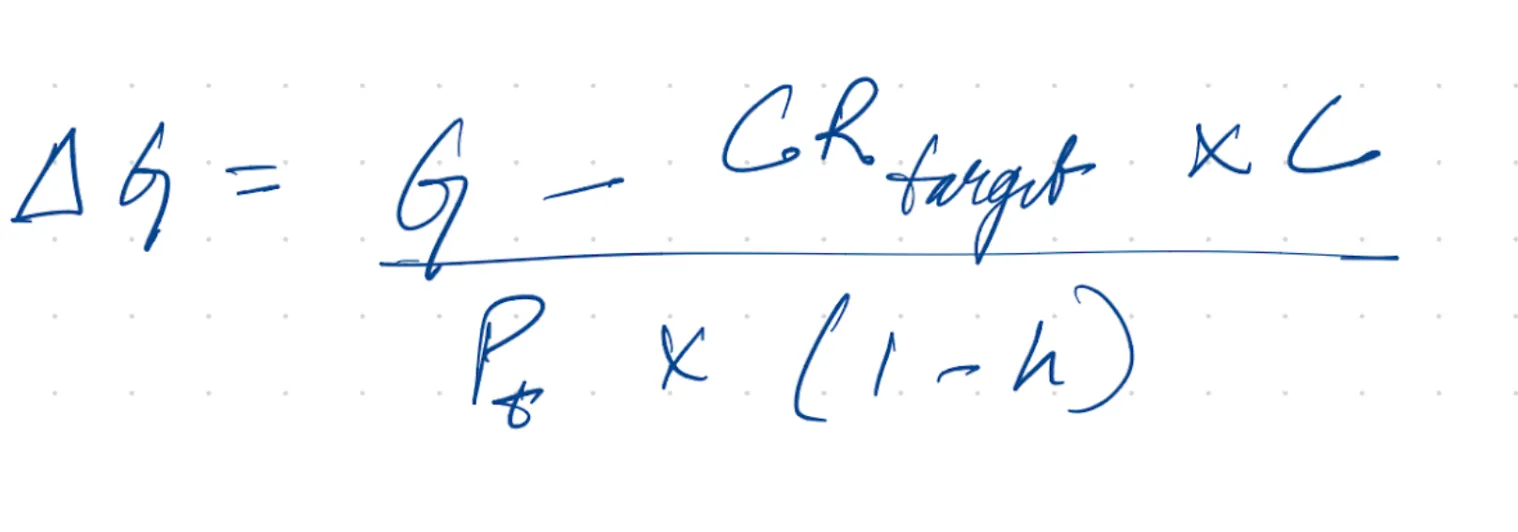 ΔG = G - CR target × C
P_t × (1 - h)